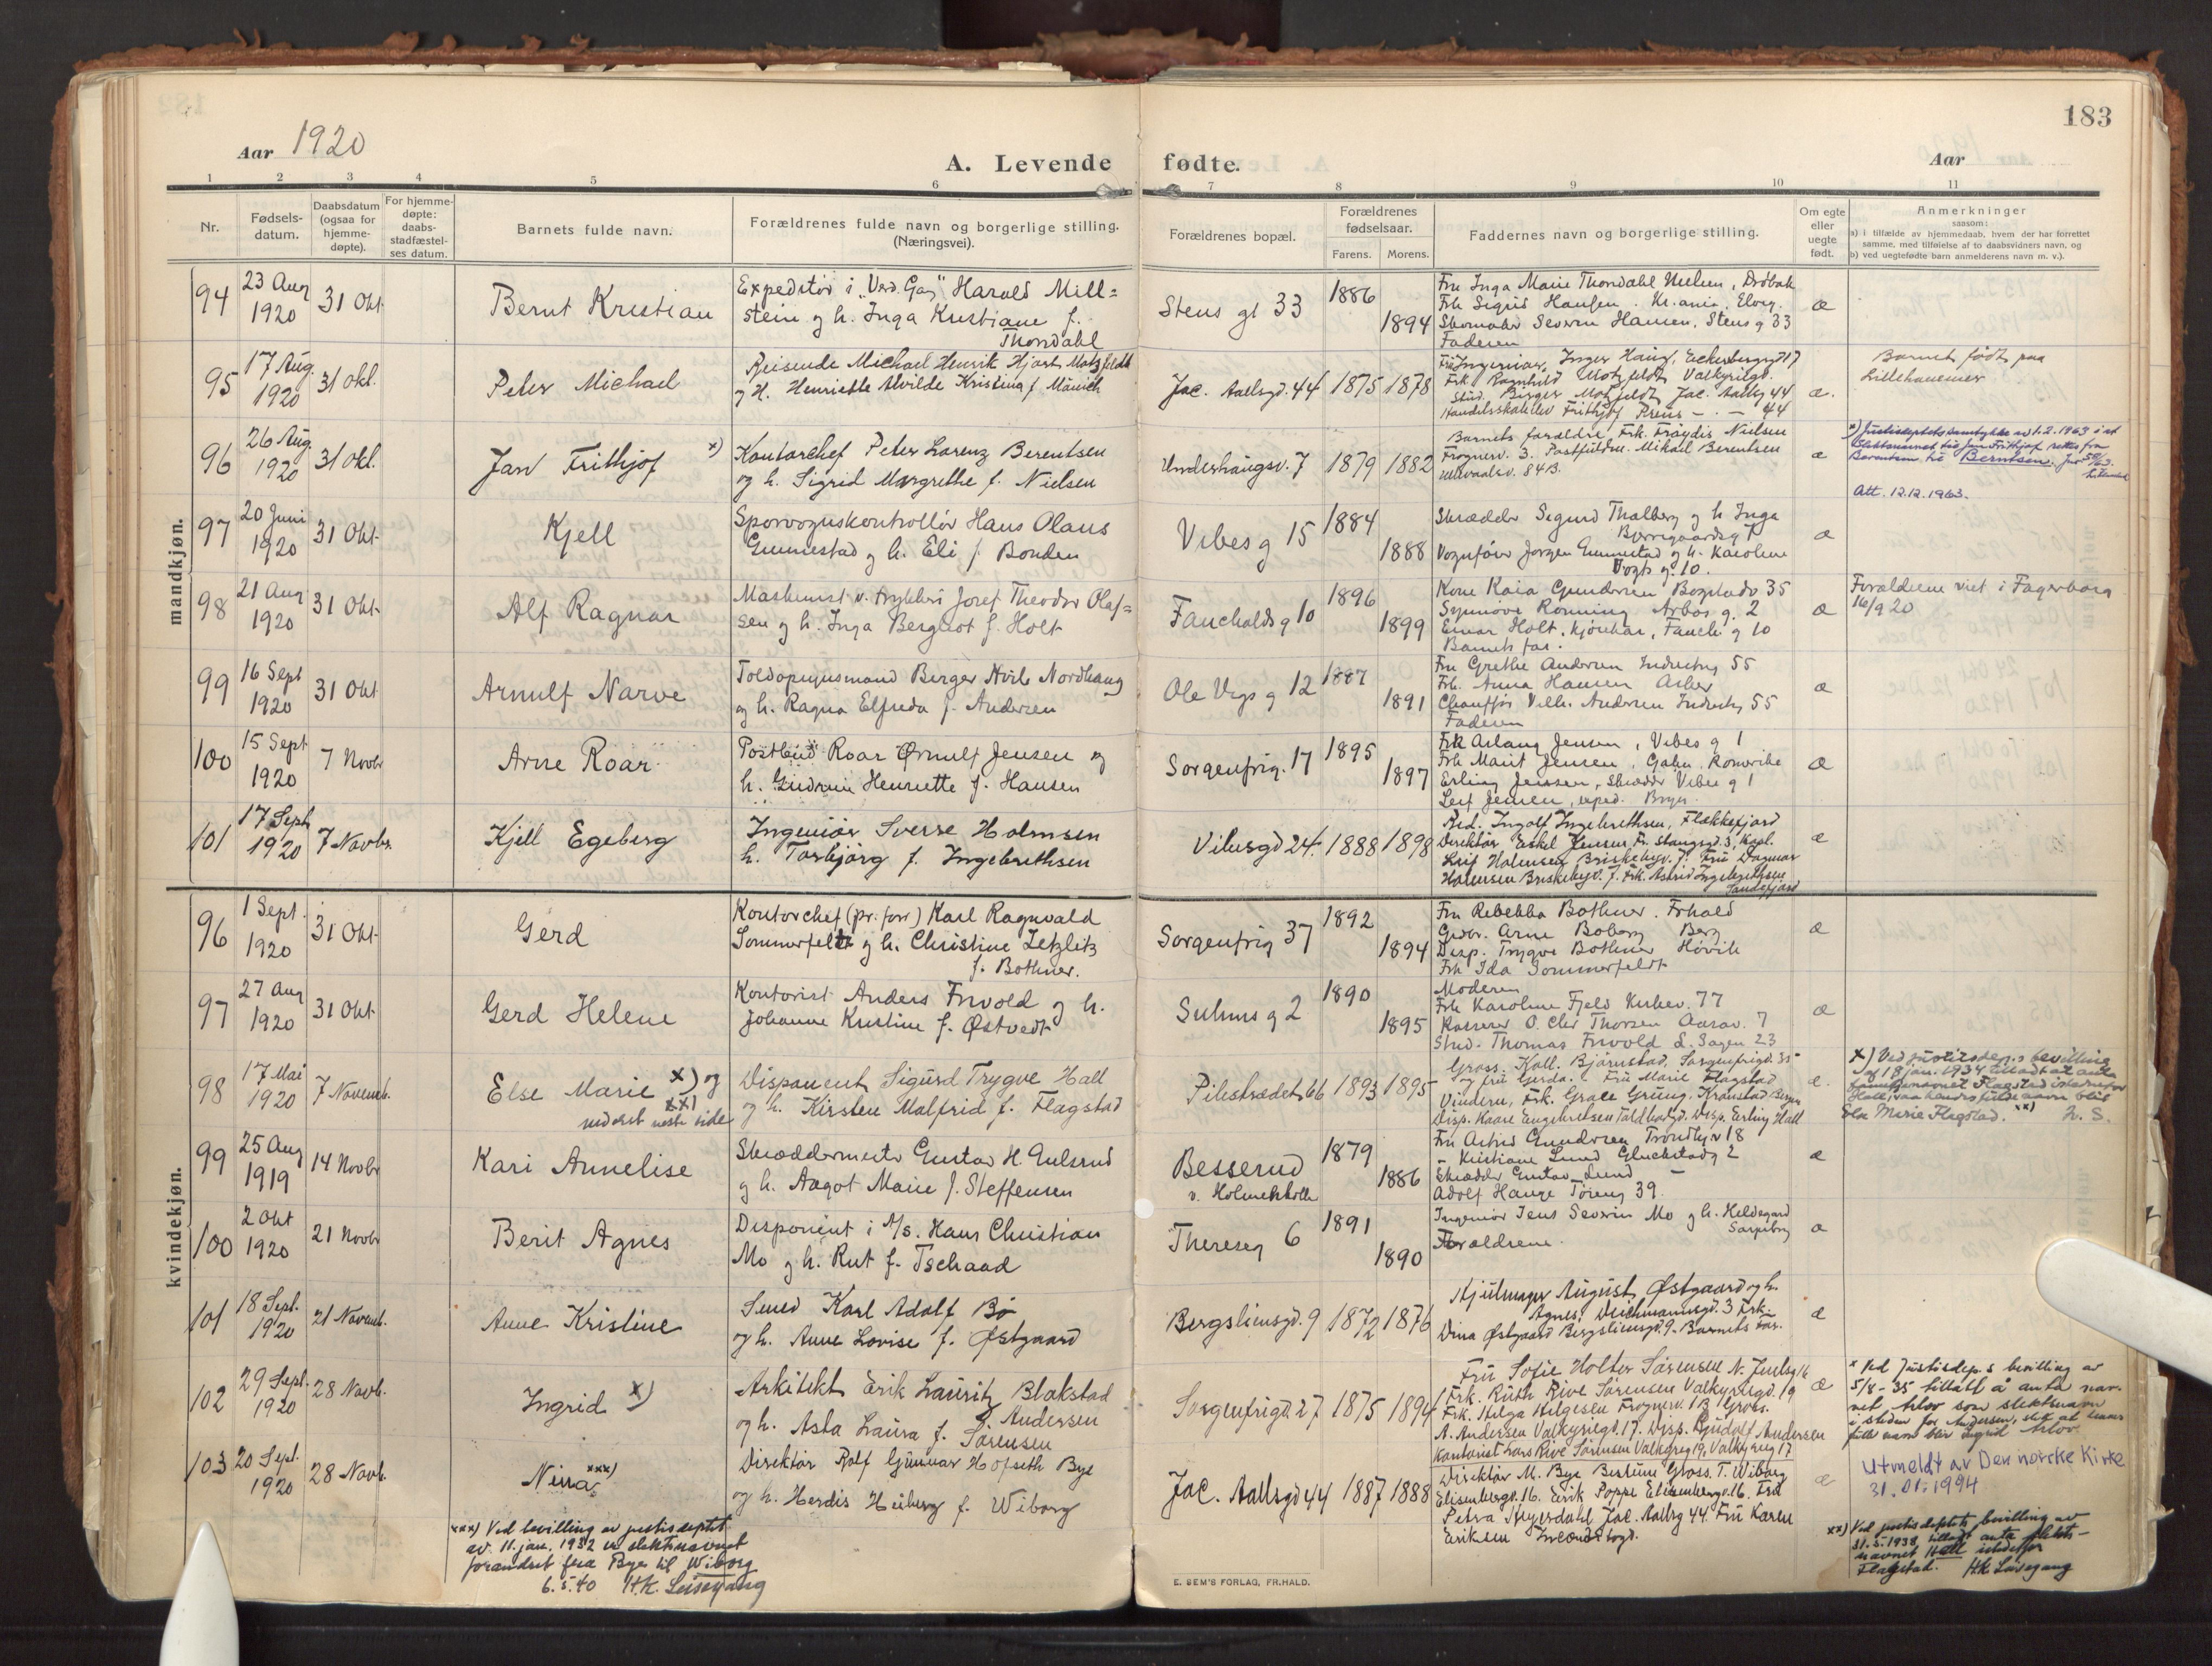 Aar 1920
A. Levende fødte.
Aar
183
1 2 3 4 5 6 7 8 9 10 11
Nr.
Fødsels-
datum.
Daabsdatum
(ogsaa for
hjemme-
døpte).
For hjemme-
døpte:
daabs-
stadfæstel-
ses datum.
Barnets fulde navn.
Forældrenes fulde navn og borgerlige stilling.
(Næringsvei).
Forældrenes bopæl.
Forældrenes
fødselsaar.
Farens. Morens.
Faddernes navn og borgerlige stilling.
Om egte
eller
uegte
født.
Anmerkninger
saasom:
a) i tilfælde av hjemmedaab, hvem der har forrettet
samme, med tilføielse af to daabsvidners navn, og
b) ved uegtefødte barn anmelderens navn m. v.).
mandkjøn.
94
23 Aug
1920
31 Okt.
Bernt Kristian
Expeditør i "Ved. Gas" Harald Mill=
stein og h. Inga Kristiane f.
Thondahl
Stens gt 33
1886
1894
Fru Inga Marie Thondahl Nielsen, Drøbak
Frk Sigrid Hansen. Kr.ania, Elveg.
Skomaker Severin Hansen, Stensg 33
Faderen
æ
95
17 Aug.
1920
31 Okt.
Peter Michael
Reisende Michael Henrik Hjort Motzfeldt
og H. Henriette Alvilde Kristina f. Münich
Jac. Aallsgd. 44
1875 1878
Fru Ingeniør Inger Haug, Eckersbergsgt 17
Frk. Ragnhild Motzfeldt Valkyriegt.
Stud. Birger Motzfeldt, Jac. Aallsg 44
Handelsskoleelev Frithjof Preus - . - 44
æ.
Barnet født paa
Lillehammer
96
26 Aug.
1920
31 Okt.
Jan Frithjof x)
Kontorchef Peter Lorenz Berentsen
og h. Sigrid Margrethe f. Nielsen
Underhaugsv. 7
1879 1882
Barnets forældre, Frk. Frøydis Nielsen
Frognerv. 3. Postfuldm. Mikael Berentsen
84 B.
æ
x) Justisdeptets samtykke av 1.2.1963 i at
slektsnavnet til Jan Frithjof rettes fra
Berentsen til Berntsen.
Att. 12.12.1963.
97
20 Juni
1920
31 Okt.
Kjell
Sporvognskontrollør Hans Olaus
Gunnestad og h. Eli f. Bonden
Vibes g 15
1884
1888
Skrædder Sigurd Thalberg og h Inga
Bjerregaardsg 7
Vognfører Jørgen Gunnestad og h. Karoline
Vogts g. 10.
æ
98
21 Aug
1920
31 Okt.
Alf Ragnar
Maskinist v. trykkeri Josef Theodor Olaf=
sen og h. Inga Bergljot f. Holt
Faucholds g 10
1896
1899
Kone Kaia Gundersen Bogstadv 35
Synnøve Rønning Arbos g. 2
Einar Holt, kjørekar, Fauch. g 10
Barnets far.
æ
Forældrene viet i Fagerborg
16/9 20
99
16 Sept
1920
31 Okt
Arnulf Narve
Toldopsynsmand Berger Hvib Nordhaug
og h. Ragna Elfrida f. Andersen
Ole Vigs g 12
1887
1891
Fru Grethe Andersen Industrig 55
Frk. Anna Hansen Asker
Chauffør Vilh. Andersen Industrig 55
Faderen
æ
100
15 Sept
1920
7 Novbr
Arne Roar
Postbud Roar Ørnulf Jensen og
h. Gudrun Henriette f. Hansen
Sorgenfrig. 17
1895
1897
Frk Aslaug Jensen, Vibes g 1
Frk Marit Jensen, Gahn, Romerike
Erling Jensen, skrædder Vibes g 1
Leif Jensen, exped.
æ
101
17 Sept
1920
7 Novbr.
Kjell Egeberg
Ingeniør Sverre Holmsen
h. Torbjørg f. Ingebrethsen
Vibesgd 24.
1888 1898
Red. Ingolf Ingebrethsen, Flekkefjord
Direktør Eskel Jensen Fr. Stangsgd. 3, Kapt.
Leif Holmsen Briskebyv. 7. Fru Dagmar
Holmsen Briskebyv. 7. Frk. Astrid Ingebrethsen
Sandefjord
æ
kvindekjøn.
96
1 Sept.
1920
31 Okt.
Gerd
Kontorchef (pr. forr) Karl Ragnvald
Sommerfeldt og h. Christine Zetzlitz
f. Bothner.
Sorgenfrig 37
1892
1894
Fru Rebekka Bothner. Frhald
Gaardbr. Arne Boberg Berg
Disp. Trygve Bothner Høvik
Frk Ida Sommerfeldt
æ
97
27 Aug
1920
31 Okt.
Gerd Helene
Kontorist Anders Frivold og h.
Johanne Kristine f. Østvedt
Suhms g 2
1890
1895
Moderen
Frk Karoline Fjeld Kirkev. 77
Kasserer O. Chr Thorsen Aasav. 7
Stud. Thomas Frivold L. Sagen 23
æ
98
17 Mai
1920
7 Novemb.
Else Marie x) og
xx) nederst neste side
Disponent Sigurd Trygve Hall
og h. Kirsten Malfrid f. Flagstad
Pilestrædet 66
1893 1895
Gross. Kall. Bjørnstad, Sorgenfrigd. 35
og fru Gerda. - Fru Marie Flagstad
Vindern, Frk. Grace Grung. Kranstad Bergen
Disp. Kaare Engebretsen Toldbodgd. Disp. Erling Hall
æ.
x) Ved justisdep.s bevilling
af 18 jan. 1934 tilladt at anta
familienavnet Flagstad istedenfor
Hall, saa hendes fulde navn blir
Else Marie Flagstad. xx) H. S.
99
25 Aug
1919
14 Novbr
Kari Annelise
Skræddermester Gustav H. Gulsrud
og h. Aagot Marie f. Steffensen
Besserud
v. Holmenkollen
1879
1886
Fru Astrid Gundersen Trondhj.v 18
- Kristiane Lund Gluckstadg 2
Skrædder Gustav Lund -
Adolf Hauge Töieng 39.
æ
100
2 Okt
1920
21 Novbr
Berit Agnes
Disponent i A/S. Hans Christian
Mo og h. Rut f. Tschaad
Thereseg 6
1891
1890
Ingeniør Jens Severin Mo og h. Heldegard
Sarpsborg
Forældrene.
æ
101
18 Sept.
1920
21 Novemb.
Anne Kristine
Smed Karl Adolf Bø
og h. Anne Lovise f. Østgaard
Bergsliensgd. 9
1872 1876
Hjulmager August Østgaard og h.
Agnes, Deichmannsgd. 3 Frk.
Dina Østgaard Bergsliensgd. 9. Barnets far.
æ
102
29 Sept.
1920
28 Novb.
Ingrid x)
Arkitekt Erik Lauritz Blakstad
Andersen
og h. Asta Laura f. Sørensen
Sorgenfrigd. 27
1875 1894
Fru Sofie Holter Sørensen N. Juelsg 16
Frk. Ruth Rive Sørensen Valkyriegd. 19
Frk. Helga Helgesen Frognerv. 1 B Gross.
A. Andersen Valkyriegt. 17. Disp. Rudolf Andersen
Kontorist Lars Rive Sørensen Valkyrieg 19, Valkyrieg 17
æ
x Ved Justisdep.s bevilling av
5/8 - 35 tillatt å anta nav-
net Arlov som slektsnavn
i steden for Andersen, slik at hennes
fulle navn blir Ingrid Arlov.
Utmeldt av Den norske Kirke
31.01.1994
103
20 Sept.
1920
28 Novb.
Nina xxx)
Direktør Rolf Gunnar Hofseth Bye
og h. Herdis Heiberg f. Wiborg
Jac. Aallsgd 44
1887 1888
Direktør M. Bye Bestum Gross. T. Wiborg
Elisenbergv. 16. Erik Poppe Elisenbergv. 16. Fru
Petra Heyerdahl Jac. Aallsg 44. Fru Karen
Eriksen Incognitogd.
æ
xxx) Ved bevilling av justisdeptet
av 11. jan. 1932 er slektsnavnet
forandret fra Bye til Wiborg
6.5.40 H.K. Leisegang
xx) Ved justisdeptets bevilling av
31.5.1938 tillatt anta slekts-
navnet Hall istedenfor
Flagstad. H.K. Leisegang
E. SEM'S FORLAG, FR.HALD.